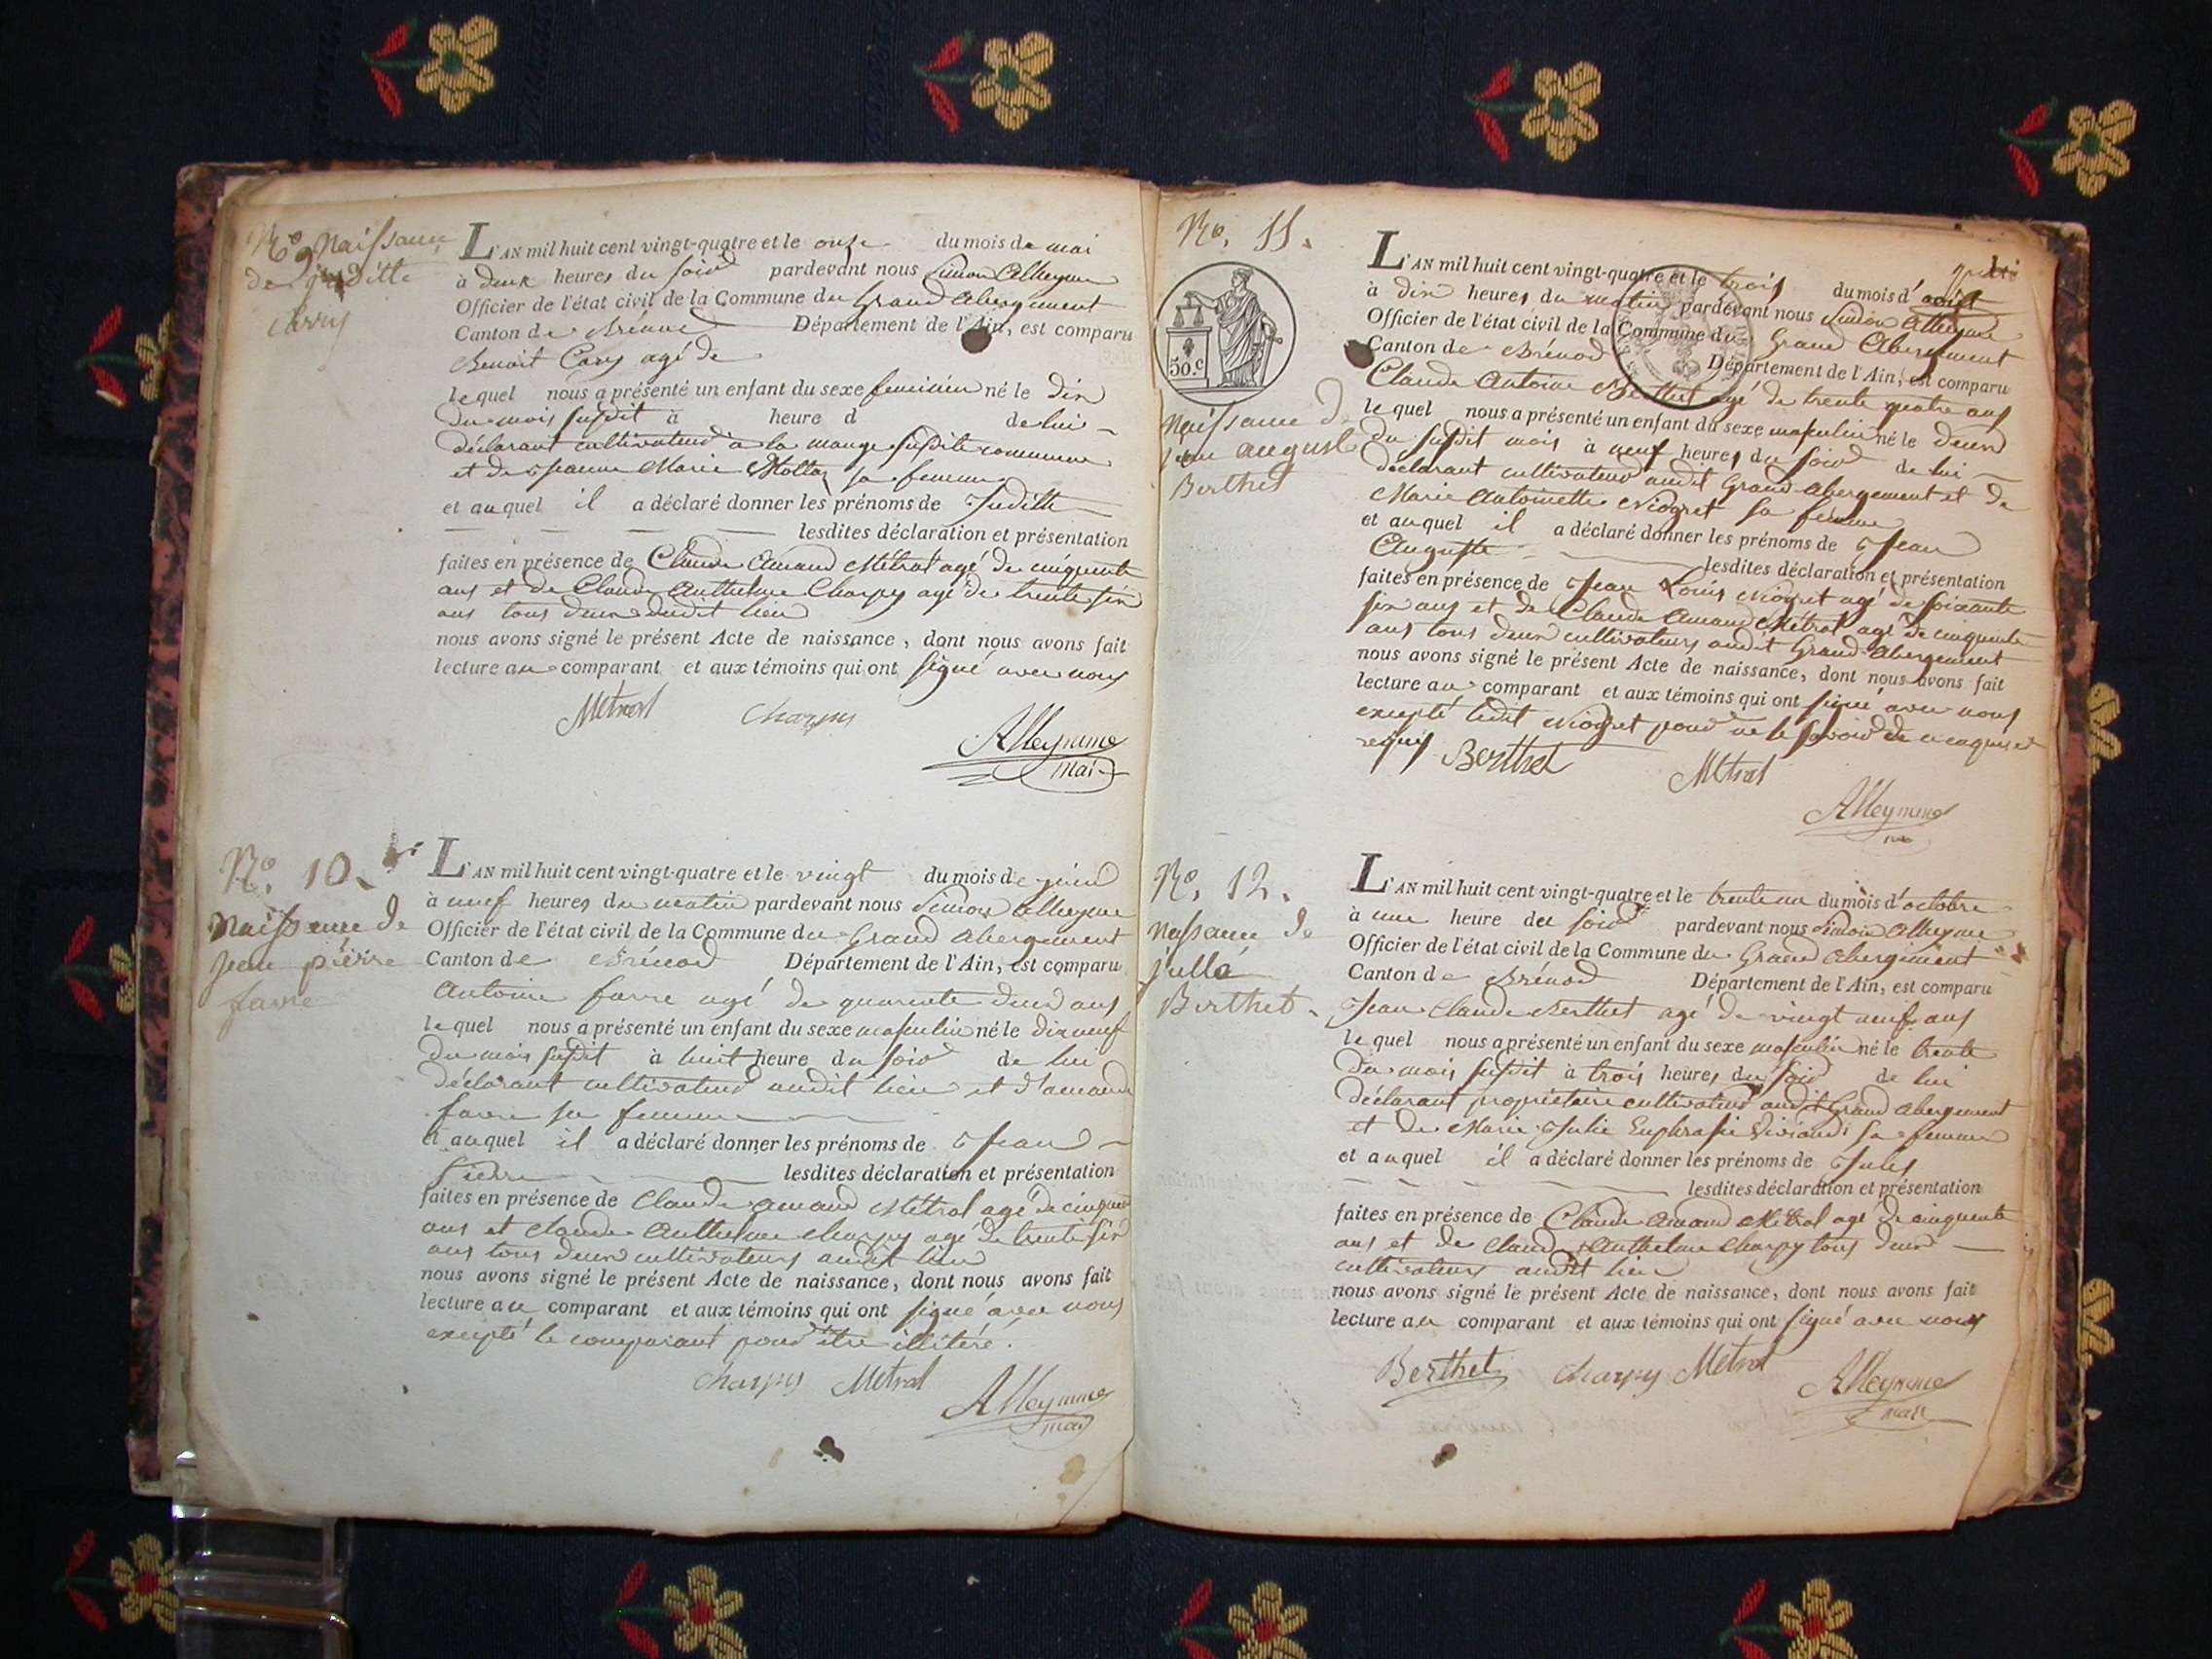 No 9 Naissance
de juditte
Carry
L'AN mil huit cent vingt-quatre et le onze du mois de mai
à deux heures du soir pardevant nous Simon Alleyme
Officier de l'état civil de la Commune du Grand Abergement
Canton de Brénod Département de l'Ain, est comparu
Benoit Cary agé de
lequel nous a présenté un enfant du sexe feminin né le dix
du mois susdit à heure d de lui
déclarant cultivateur à la mange susdite commune
et de Jeanne Marie Mollaz sa femme
et auquel il a déclaré donner les prénoms de Judith
lesdites déclaration et présentation
faites en présence de Claude Amand Métral agé de cinquante
ans et de Claude Anthelme Charpy agé de trente six
ans tous deux dudit lieu
nous avons signé le présent Acte de naissance, dont nous avons fait
lecture au comparant et aux témoins qui ont signé avec nous
Métral Charpy
Alleyme
maire
No. 10.
Naissance de
jean piérre
favre
L'AN mil huit cent vingt-quatre et le vingt du mois de juin
à neuf heures du matin pardevant nous Simon Alleyme
Officier de l'état civil de la Commune du Grand Abergement
Canton de Brénod Département de l'Ain, est comparu
Antoine favre agé de quarente deux ans
lequel nous a présenté un enfant du sexe masculin né le dix neuf
du mois susdit à huit heure du soir de lui
déclarant cultivateur audit lieu et d'amand
favre sa femme
et auquel il a déclaré donner les prénoms de Jean
Pierre lesdites déclaration et présentation
faites en présence de Claude amand Métral agé de cinquante
ans et Claude Anthelme Charpy agé de trente six
ans tous deux cultivateurs audit lieu
nous avons signé le présent Acte de naissance, dont nous avons fait
lecture au comparant et aux témoins qui ont signé avec nous
excepté le comparant pour être illitéré.
Charpy Métral
Alleyme
maire
No. 11.
50.c
Naissance de
jean august
Berthet
L'AN mil huit cent vingt-quatre et le trois du mois d'août
à dix heures du matin pardevant nous Simon Alleyme
Officier de l'état civil de la Commune du Grand Abergement
Canton de Brénod Département de l'Ain, est comparu
Claude Antoine Berthet agé de trente quatre ans
lequel nous a présenté un enfant du sexe masculin né le deux
du susdit mois à neuf heures du soir de lui
déclarant cultivateur audit Grand Abergement et de
Marie Antoinette Niogret sa femme
et auquel il a déclaré donner les prénoms de Jean
Auguste lesdites déclaration et présentation
faites en présence de Jean Louis Niogret agé de soixante
six ans et de Claude Amand Métral agé de cinquante
ans tous deux cultivateurs audit Grand Abergement
nous avons signé le présent Acte de naissance, dont nous avons fait
lecture au comparant et aux témoins qui ont signé avec nous
excepté ledit Niogret pour ne le savoir de ce enquis et
requis Berthet
Métral
Alleyme
No. 12.
Naissance de
jullé
Berthet
L'AN mil huit cent vingt-quatre et le trente un du mois d'octobre
à une heure du soir pardevant nous Simon Alleyme
Officier de l'état civil de la Commune du Grand Abergement
Canton de Brénod Département de l'Ain, est comparu
Jean Claude Berthet agé de vingt neuf ans
lequel nous a présenté un enfant du sexe masculin né le trente
du mois susdit à trois heures du soir de lui
déclarant propriétaire cultivateur audit Grand Abergement
et de Marie Julie Euphrasie sa femme
et auquel il a déclaré donner les prénoms de Jules
lesdites déclaration et présentation
faites en présence de Claude Amand Métral agé de cinquante
ans et de Claude Anthelme Charpy tous deux
cultivateurs audit lieu
nous avons signé le présent Acte de naissance, dont nous avons fait
lecture au comparant et aux témoins qui ont signé avec nous
Berthet Charpy Métral Alleyme
maire